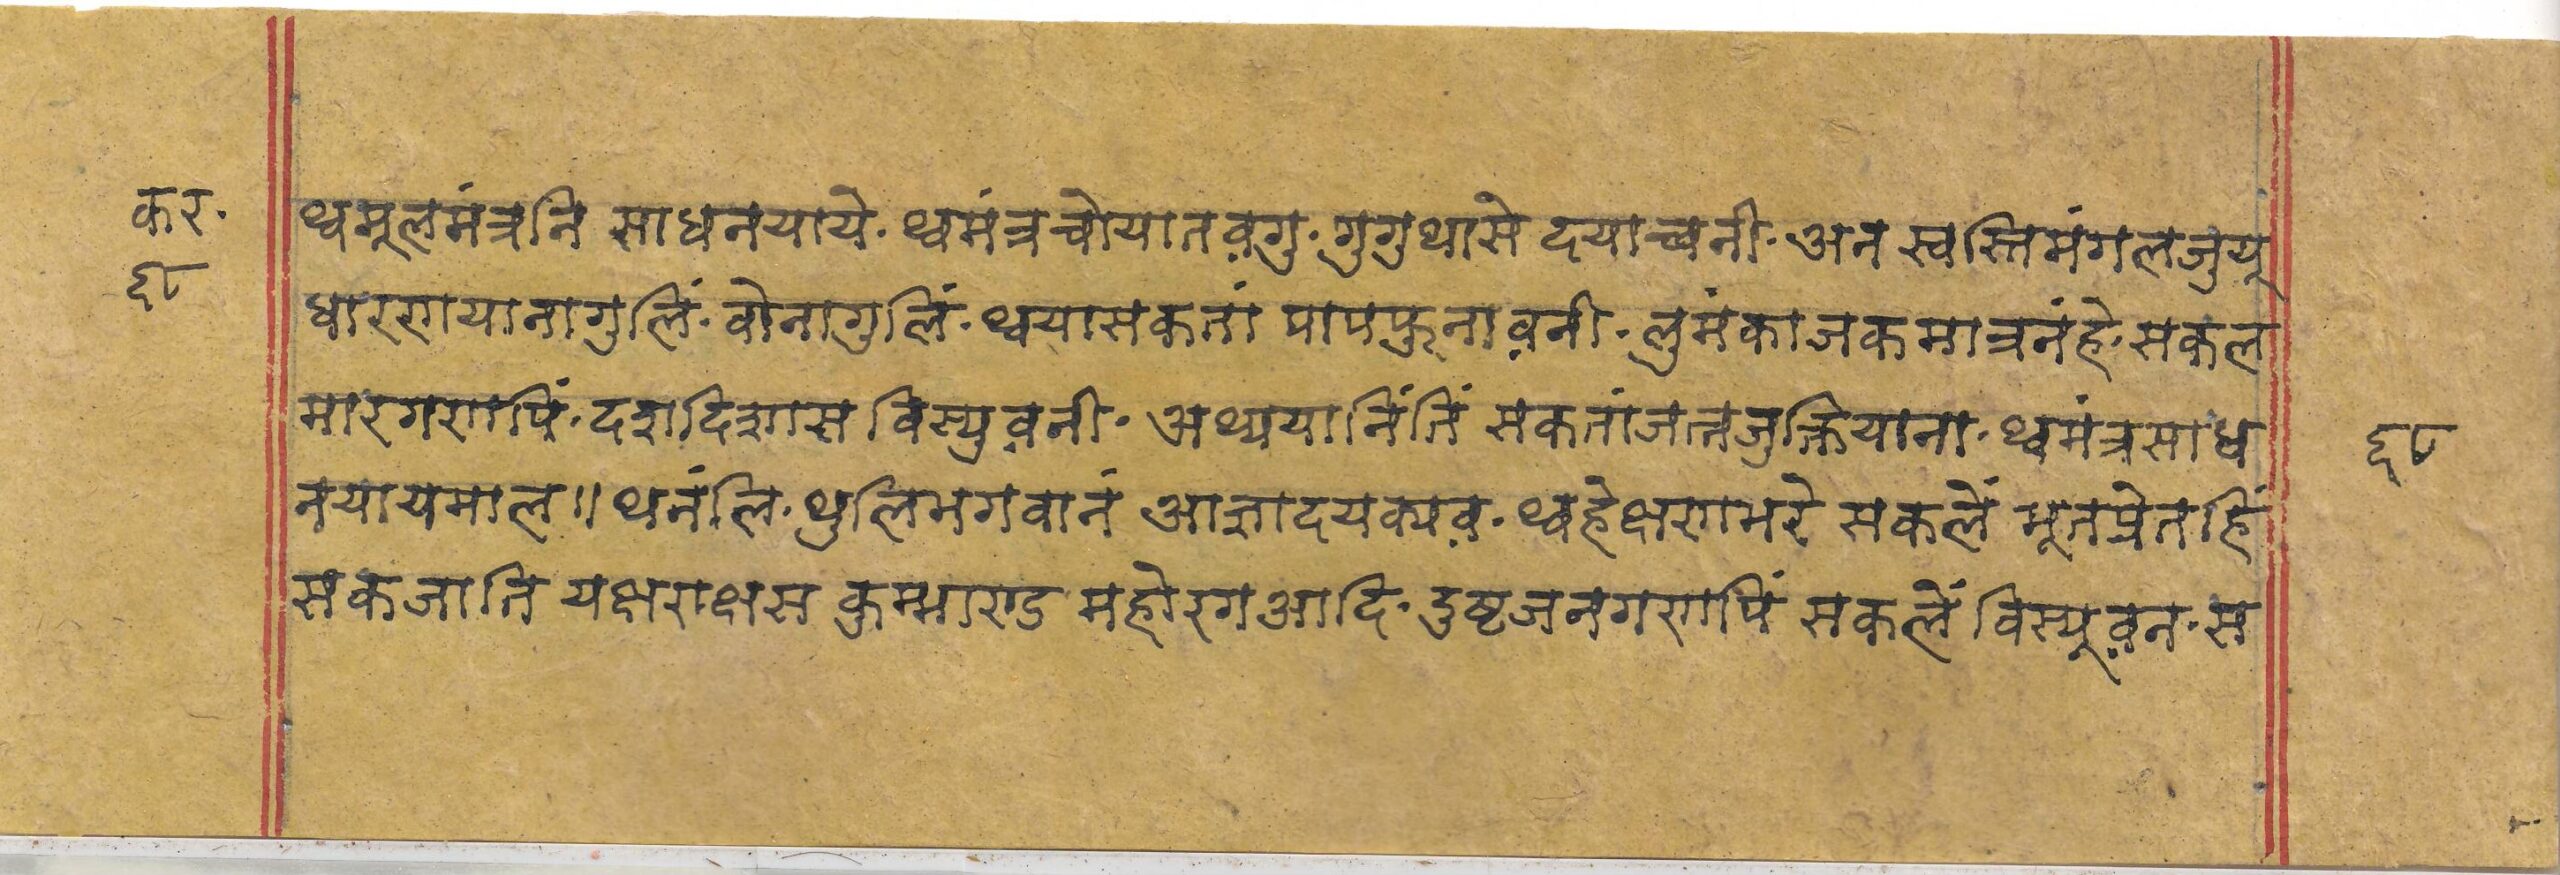 कर.
६८
थ्वमूलमंत्रनि साधनयाये. थ्वमंत्रचोयातव़गु. गुगुथासे दयाच्वनी. अन स्वस्तिमंगलजुयू
धारणयानागुलिं. वोनागुलिं. थ्वयासकतां पापफुनाव़नी. लुमंकाजकमात्रनंहे. सकल
मारगणपिं. दशदिशास विस्युव़नी. अथ्ययानिंतिं सकतांजत्नजुक्तियाना. थ्वमंत्रसाध
नयायमाल॥ थनंलि. थुलिभगवानं आज्ञादयक्यव़. थ्वहेक्षणभरे सकलें भूतप्रेतहिं
सकजाति यक्षराक्षस कुम्भाण्ड महोरगआदि. दुष्टजनगणपिं सकलें विस्यूव़न. स
६८